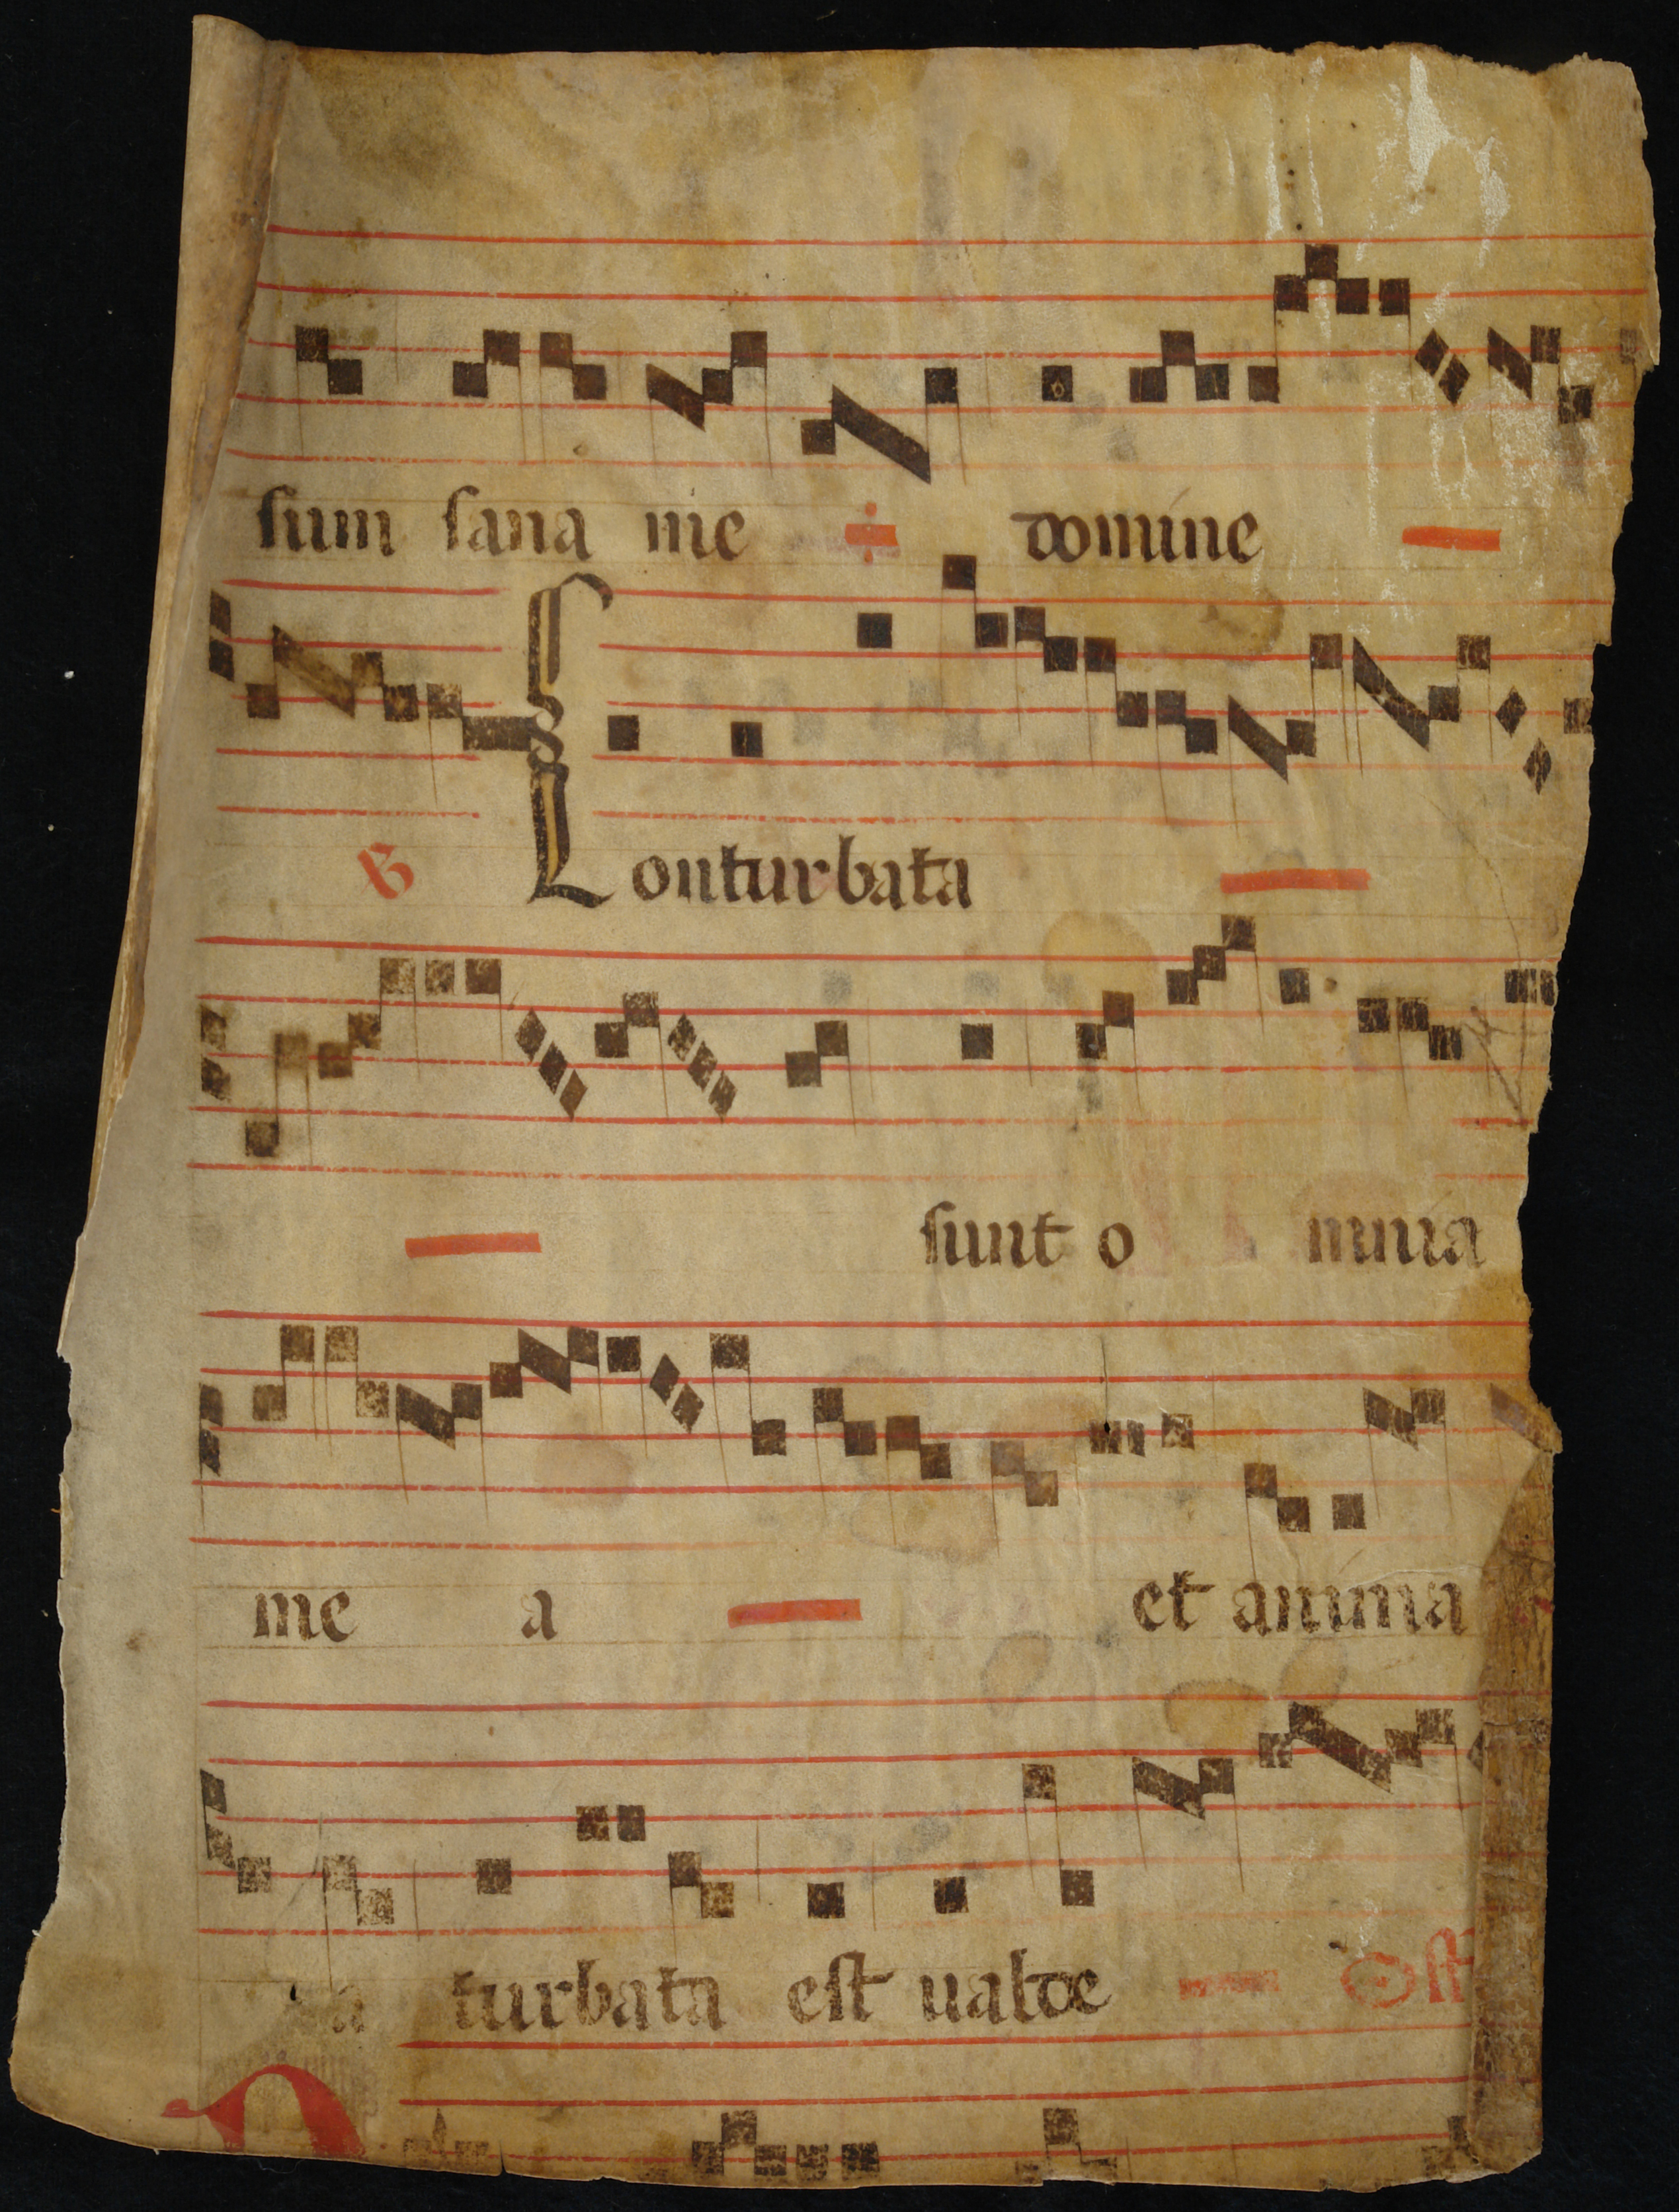 sum sana me domine
℣ Conturbata
sunt o mnia
me a et anima
a turbata est ualde Off